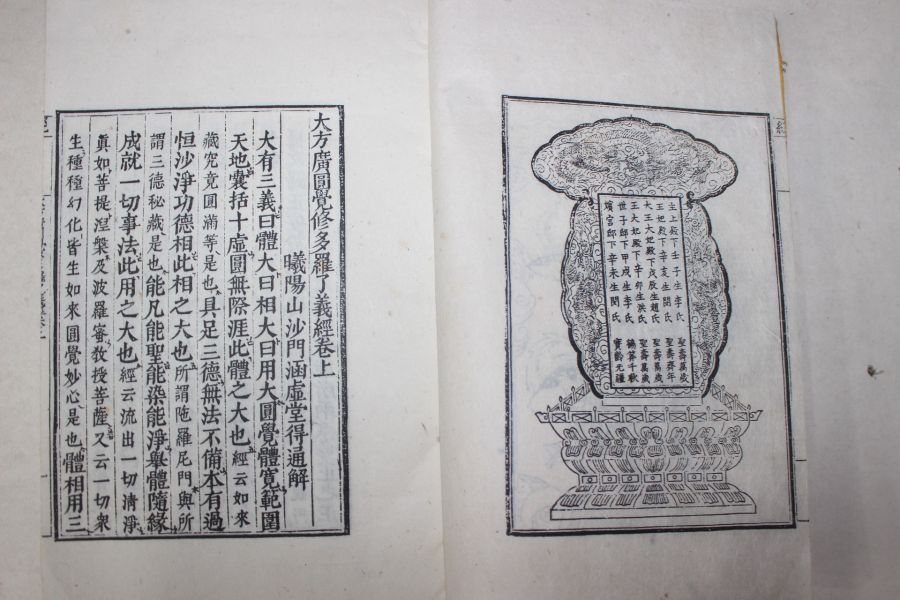 主上殿下壬子生李氏 聖壽萬歲
王妃殿下辛亥生閔氏 聖壽齊年
大王大妃殿下戊辰生趙氏 聖壽萬歲
王大妃殿下辛卯生洪氏 聖壽萬歲
世子邸下甲戌生李氏 鶴筭千秋
嬪宮邸下辛未生閔氏 寶齡无疆
大方廣圓覺修多羅了義經卷上
曦陽山沙門涵虛堂得通解
大有三義曰體大曰相大曰用大圓覺體寬範圍
天地囊括十虛圓無際涯此體之大也經云如來
藏究竟圓滿等是也具足三德無法不備本有過
恒沙淨功德相此相之大也所謂陁羅尼門與所
謂三德秘藏是也能凡能聖能染能淨舉體隨緣
成就一切事法此用之大也經云流出一切淸淨
眞如菩提涅槃及波羅蜜敎授菩薩又云一切衆
生種種幻化皆生如來圓覺妙心是也體相用三